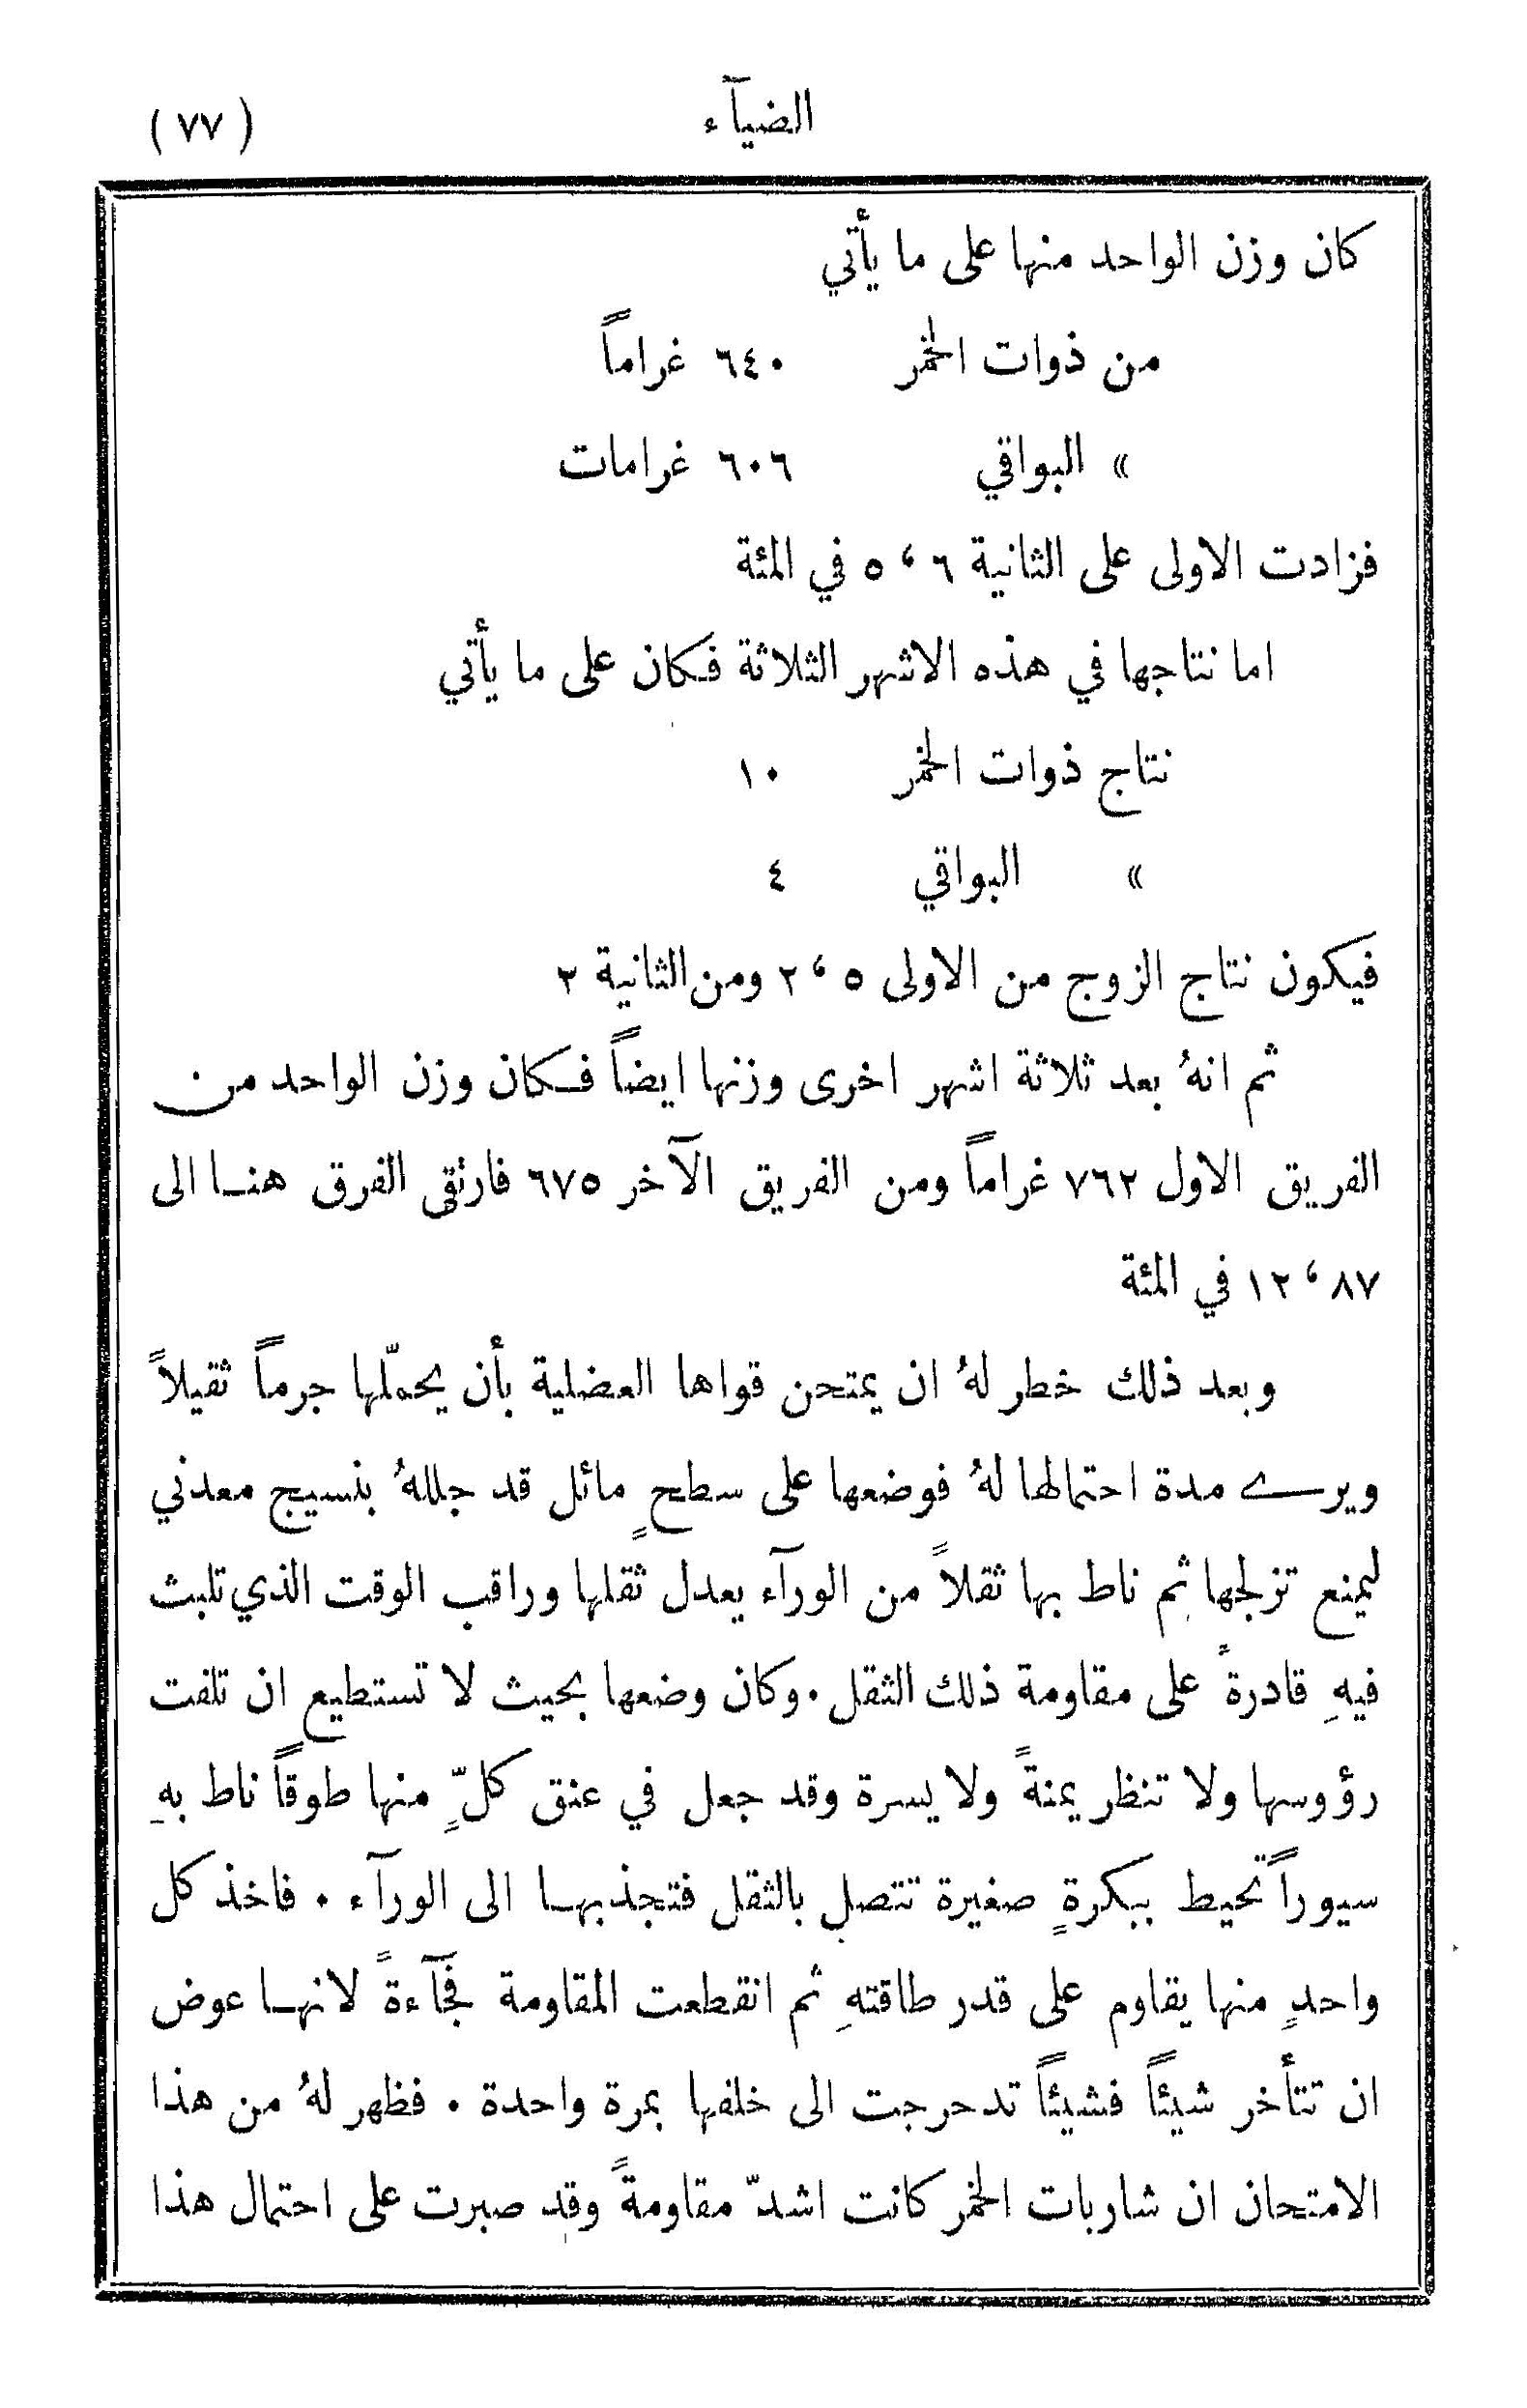 الضيآء
( ٧٧ )
كان وزن الواحد منها على ما يأتي
من ذوات الخمر ٦٤٠ غراماً
» البواقي ٦٠٦ غرامات
فزادت الاولى على الثانية ٦‘٥ في المئة
اما نتاجها في هذه الاشهر الثلاثة فكان على ما يأتي
نتاج ذوات الخمر ١٠
» البواقي ٤
فيكون نتاج الزوج من الاولى ٥‘٢ ومن الثانية ٢
ثم انهُ بعد ثلاثة اشهر اخرى وزنها ايضاً فكان وزن الواحد من
الفريق الاول ٧٦٢ غراماً ومن الفريق الآخر ٦٧٥ فارتقى الفرق هنا الى
٨٧‘١٢ في المئة
وبعد ذلك خطر لهُ ان يمتحن قواها العضلية بأن يحمّلها جرماً ثقيلاً
ويرى مدة احتمالها لهُ فوضعها على سطحٍ مائل قد جللهُ بنسيج معدني
ليمنع تزلجها ثم ناط بها ثقلاً من الورآء يعدل ثقلها وراقب الوقت الذي تلبث
فيهِ قادرةً على مقاومة ذلك الثقل . وكان وضعها بحيث لا تستطيع ان تلفت
رؤوسها ولا تنظر يمنةً ولا يسرة وقد جعل في عنق كلٍّ منها طوقاً ناط بهِ
سيوراً تحيط ببكرةٍ صغيرة تتصل بالثقل فتجذبها الى الورآء . فاخذ كل
واحدٍ منها يقاوم على قدر طاقتهِ ثم انقطعت المقاومة فجآءةً لانها عوض
ان تتأخر شيئاً فشيئاً تدحرجت الى خلفها بمرة واحدة . فظهر لهُ من هذا
الامتحان ان شاربات الخمر كانت اشدّ مقاومةً وقد صبرت على احتمال هذا